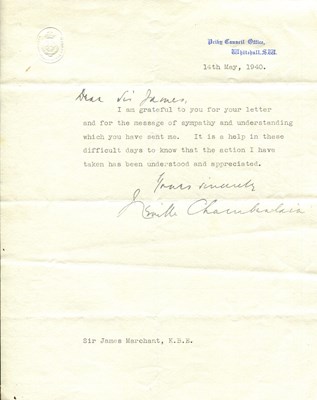 Privy Council Office,
Whitehall, S.W.
14th May, 1940.
Dear Sir James,
I am grateful to you for your letter
and for the message of sympathy and understanding
which you have sent me. It is a help in these
difficult days to know that the action I have
taken has been understood and appreciated.
Yours sincerely
Neville Chamberlain
Sir James Marchant, K.B.E.